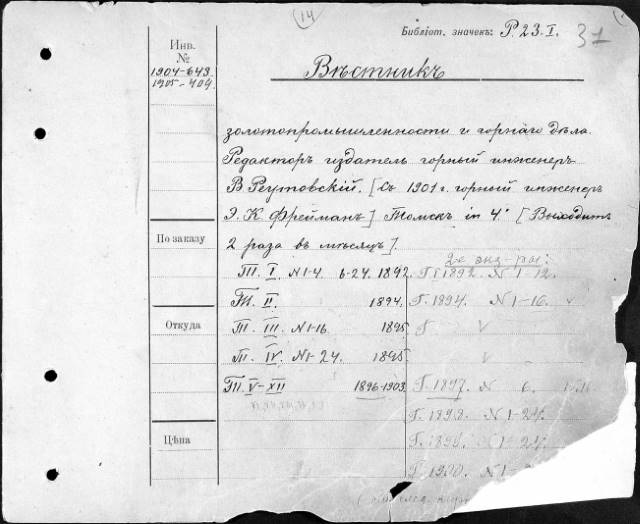 14
Библіот. значекъ: Р 23.I.
31
Инв.
№
1904-643
1905-404.
Вѣстникъ
золотопромышленности и горнаго дѣла.
Редакторъ издатель горный инженеръ
В Реутовскій. [Съ 1901 г. горный инженеръ
Э. К. Фрейманъ] Томскъ in 4° [Выходитъ
2 раза въ мѣсяцъ].
По заказу
2е экз-ры:
Тт. I. N 1-4 6-24. 1892.
Г. 1892. N 1-12.
Тт. II. 1894.
Г. 1894. N 1-16. v
Откуда
Тт. III. N 1-16. 1895
Г. v
Тт. IV. N 1-24. 1895
v
Тт. V-XII 1896-1903.
Г. 1897. N 6.
Г. 1898. N 1-24.
Цѣна
Г. 1899. N 1-24.
Г. 1900. N 1-2